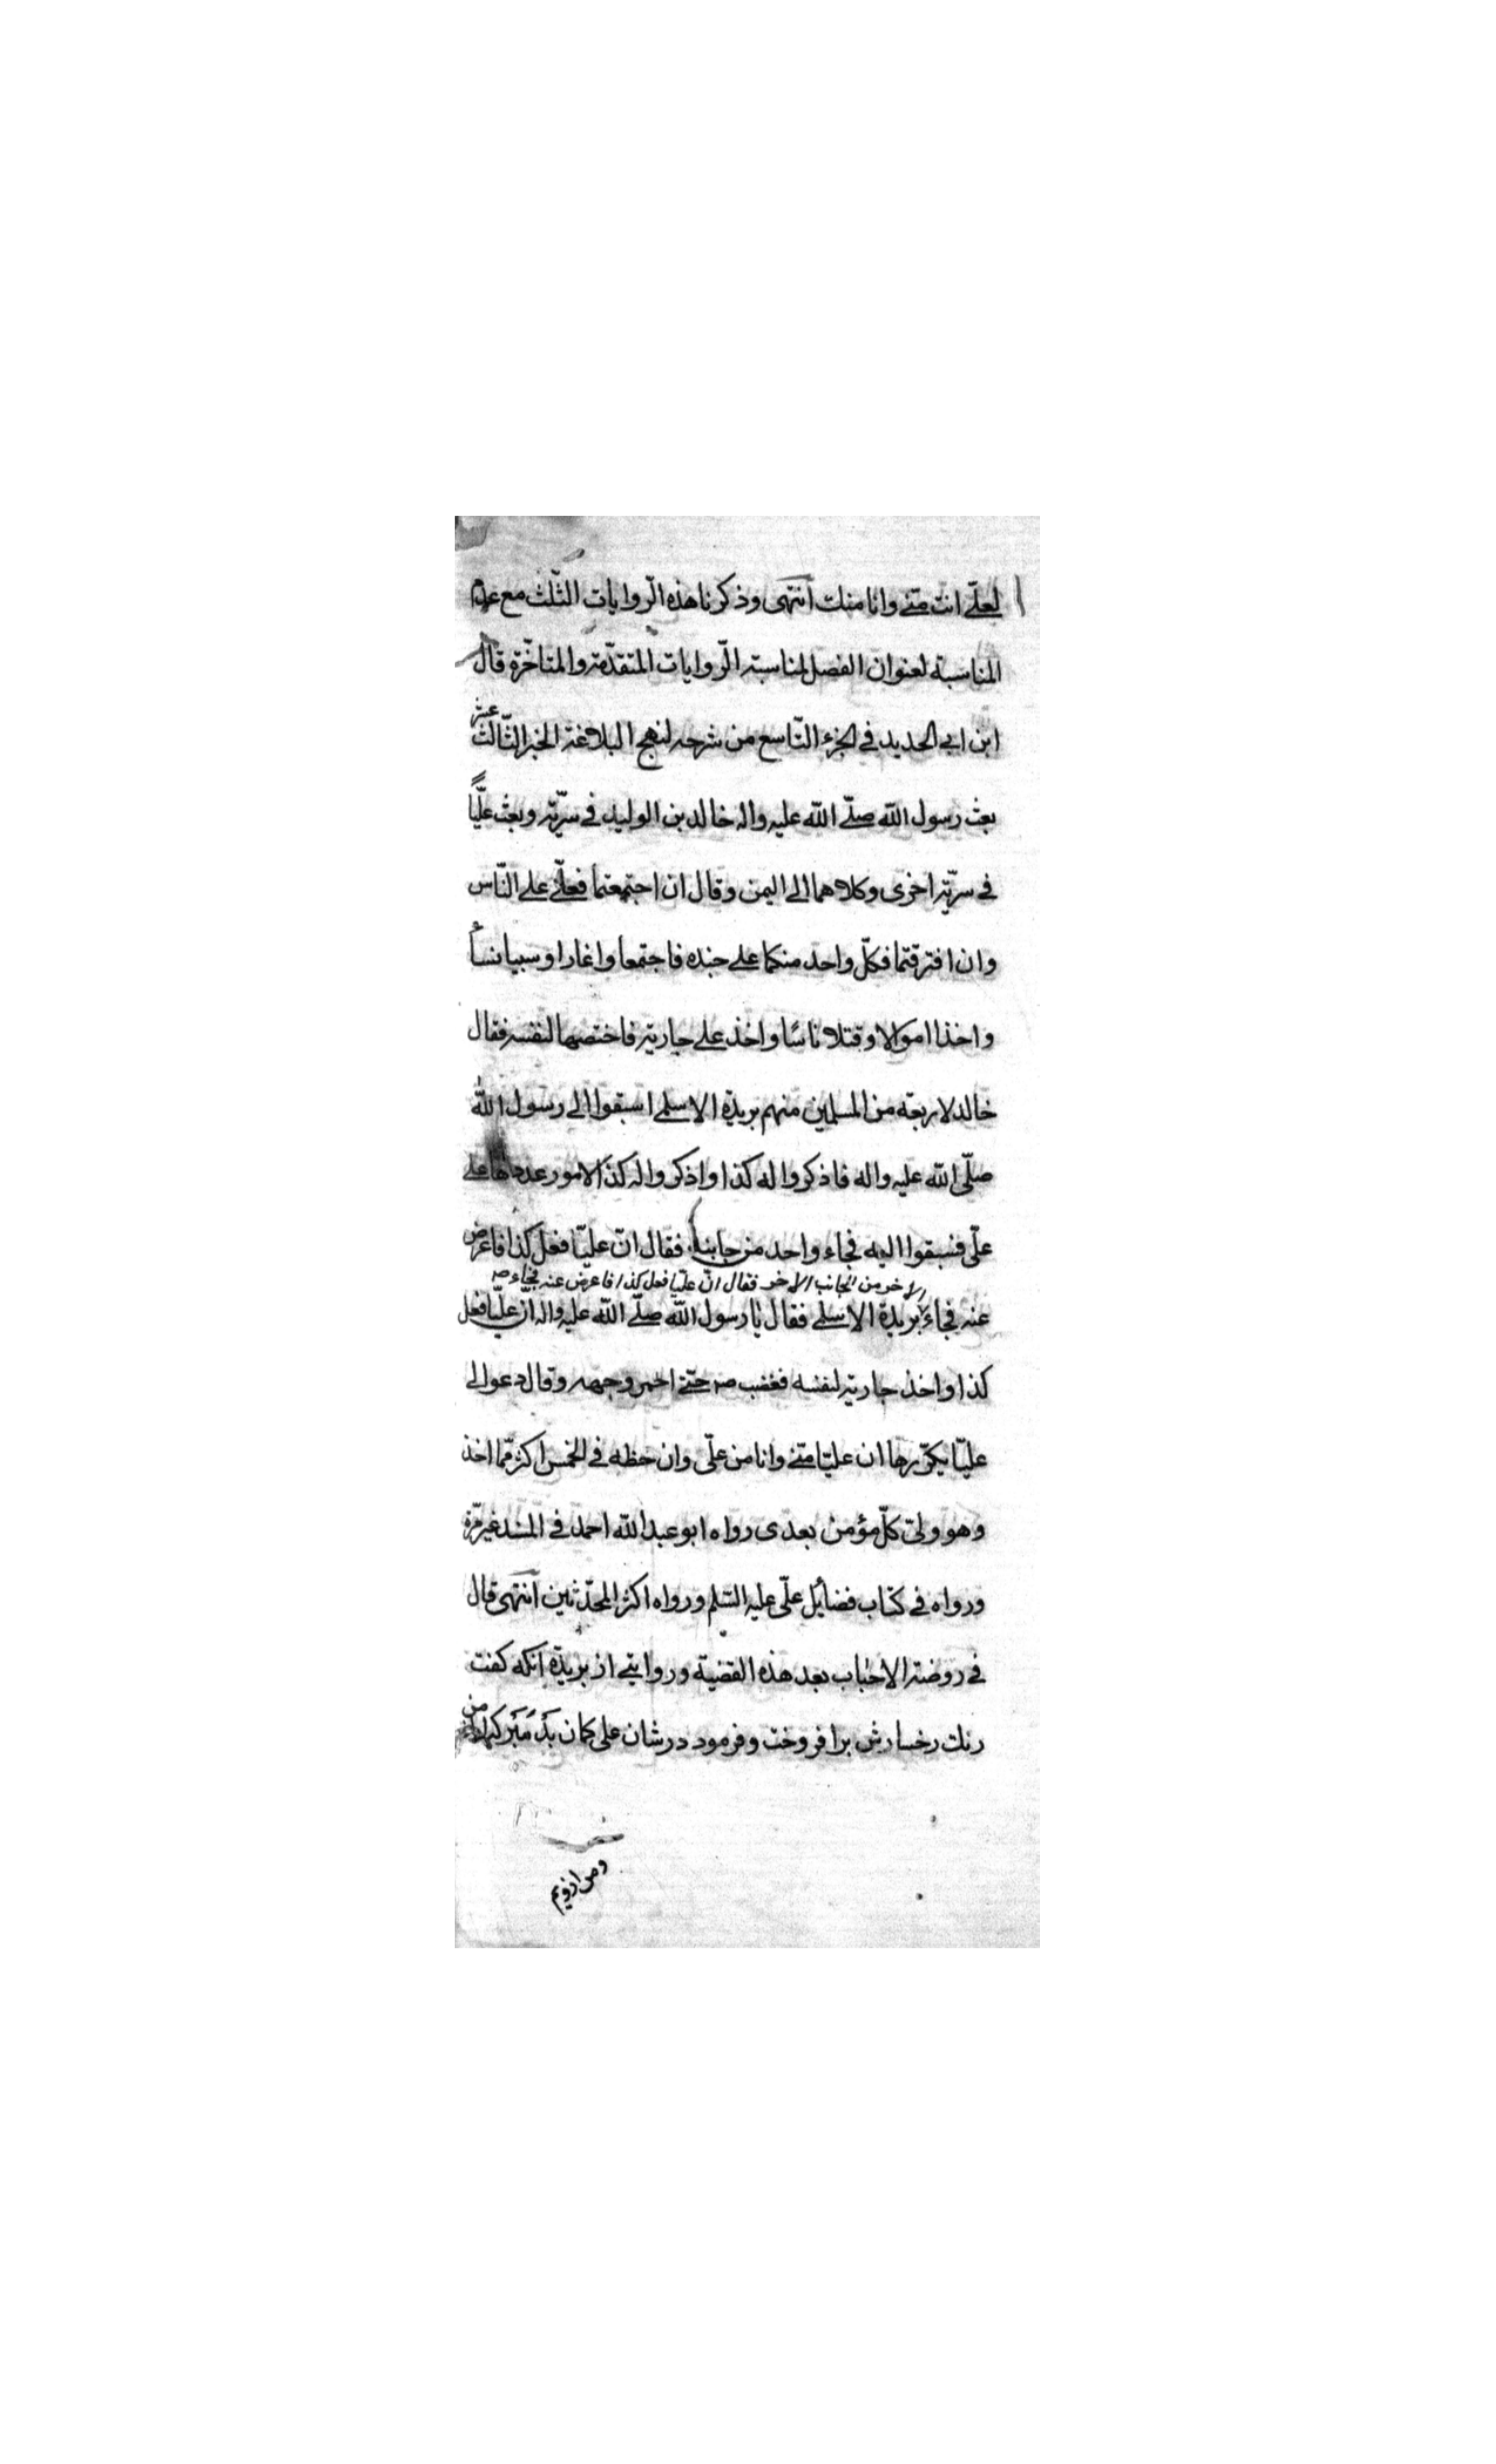 لعلّي انت منّي وانا منك انتهى وذكرنا هذه الرّوايات الثّلث مع عدم
المناسبة لعنوان الفصل لمناسبة الرّوايات المتقدّمة والمتاخّرة قال
ابن ابي الحديد في الجزء التّاسع من شرحه لنهج البلاغة الخبر الثّالث عشر
بعث رسول الله صلّى الله عليه واله خالد بن الوليد في سرّية وبعث عليًّا
في سرّية اخرى وكلاهما الى اليمن وقال ان اجتمعتما فعلّي على النّاس
وان افترقتما فكلّ واحد منكما على جنده فاجتمعا واغارا وسبيا نسأ
واخذا اموالا وقتلا ناسًا واخذ علي جارية فاختصها لنفسه فقال
خالد لاربعة من المسلمين منهم بريدة الاسلمي اسبقوا الى رسول الله
صلّى الله عليه واله فاذكروا له كذا واذكروا له كذا لامور عددها على
علّي فسبقوا اليه فجاء واحد من جانبه فقال انّ عليّا فعل كذا فاعرض
الاخر من الجانب الاخر فقال انّ عليّا فعل كذا فاعرض عنه فجاء صح
عنه فجاء بريدة الاسلمي فقال يا رسول الله صلّى الله عليه واله ان عليّا فعل
كذا واخذ جارية لنفسه فغضب ص حتّى احمر وجهه وقال دعوا لي
عليّا يكرّرها ان عليّا منّي وانا من علّي وان حظه في الخمس اكثر ممّا اخذ
وهو ولّي كلّ مؤمن بعدى رواه ابو عبد الله احمد في المسند غير مرّة
ورواه في كتاب فضائل علّي عليه السّلم ورواه اكثر المحدّثين انتهى قال
في روضة الاحباب بعد هذه القضية وروايتي از بريدة انكه كفت
رنك رخسارش برافروخت وفرمود درشان علي كمان بد مبر كه او از من
ومن ازويم